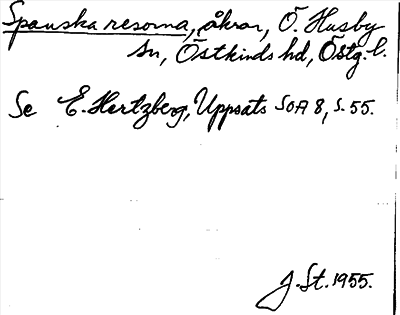 Spanska resorna, åkrar, Ö. Husby
sn, Östkinds hd, Östg. l.
Se E. Hertzberg, Uppsats SOÄ 8, s. 55.
J. St. 1955.